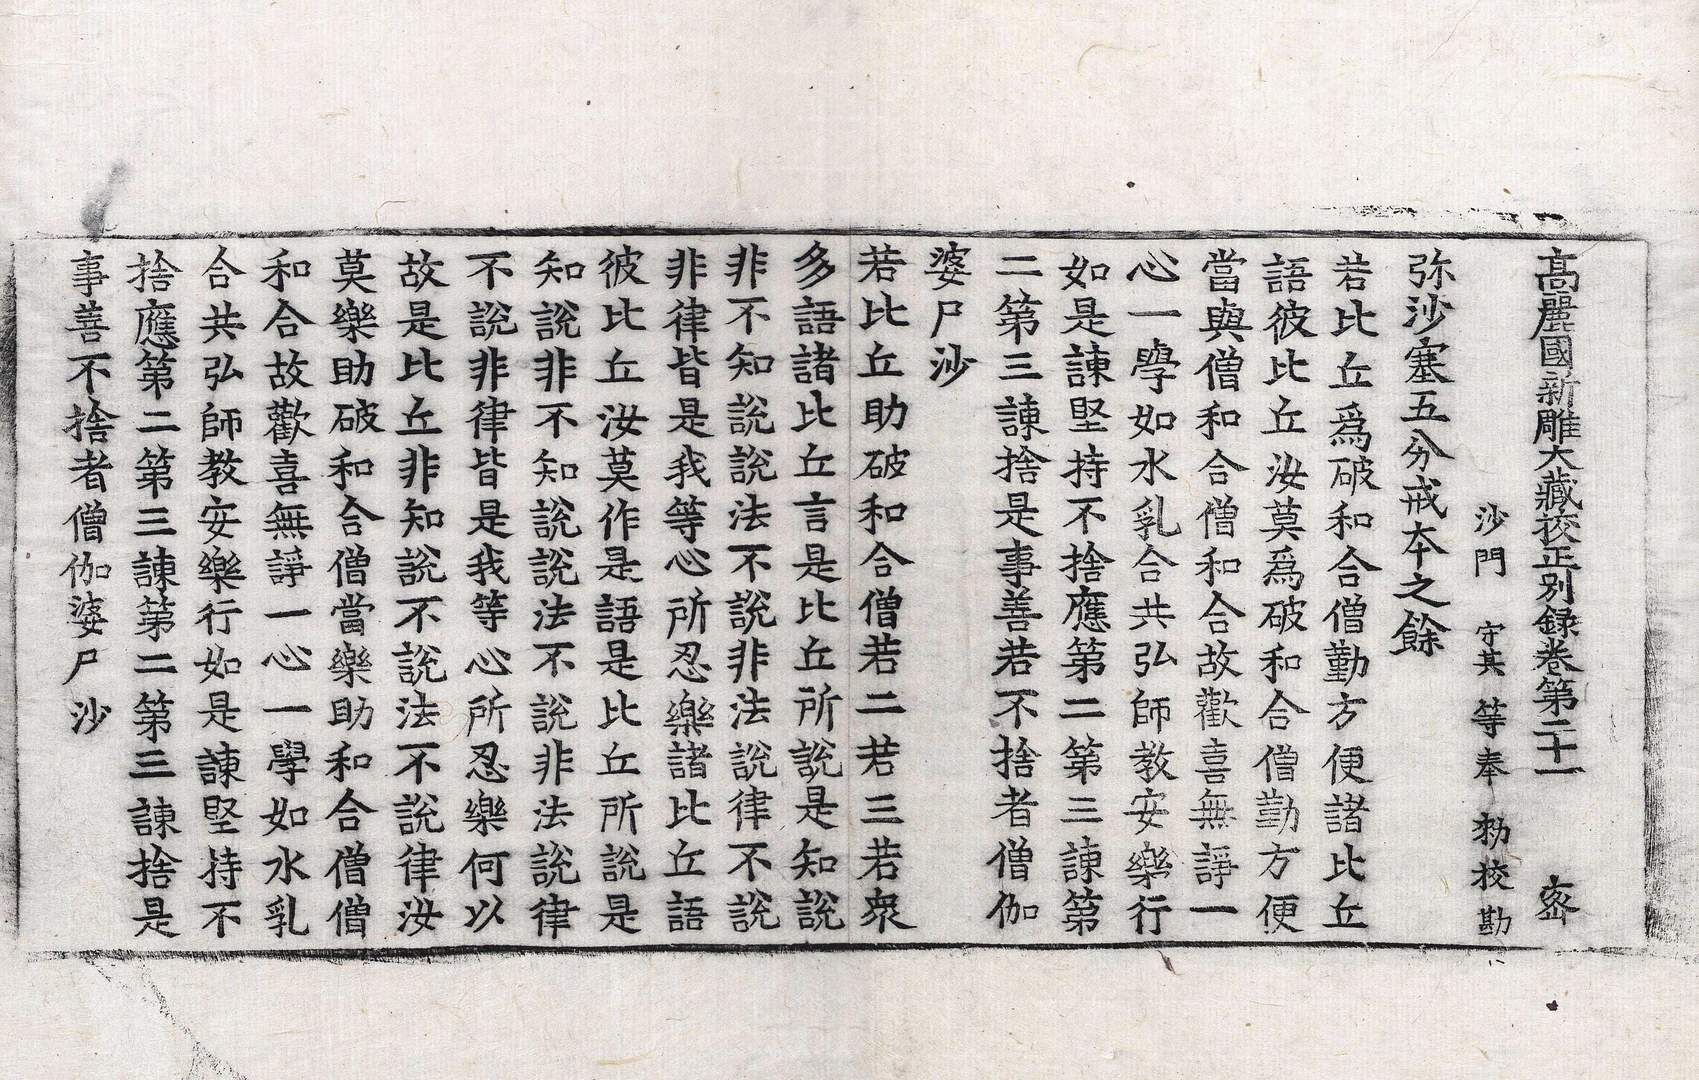 高麗國新雕大藏校正別錄卷第二十一 密
沙門 守其 等奉 勑校勘
弥沙塞五分戒本之餘
若比丘爲破和合僧勤方便諸比丘
語彼比丘汝莫爲破和合僧勤方便
當與僧和合僧和合故歡喜無諍一
心一學如水乳合共弘師教安樂行
如是諫堅持不捨應第二第三諫第
二第三諫捨是事善若不捨者僧伽
婆尸沙
若比丘助破和合僧若二若三若衆
多語諸比丘言是比丘所說是知說
非不知說說法不說非法說律不說
非律皆是我等心所忍樂諸比丘語
彼比丘汝莫作是語是比丘所說是
知說非不知說說法不說非法說律
不說非律皆是我等心所忍樂何以
故是比丘非知說不說法不說律汝
莫樂助破和合僧當樂助和合僧僧
和合故歡喜無諍一心一學如水乳
合共弘師教安樂行如是諫堅持不
捨應第二第三諫第二第三諫捨是
事善不捨者僧伽婆尸沙